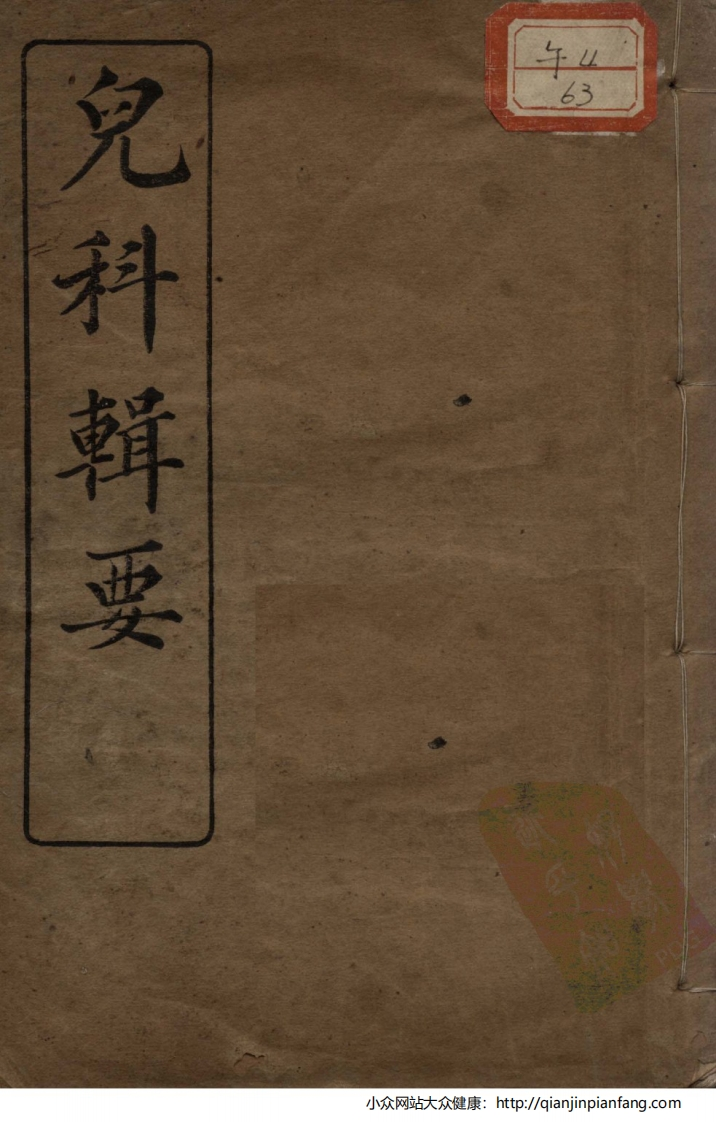 兒科輯要
午4
63
小众网站大众健康：http://qianjinpianfang.com